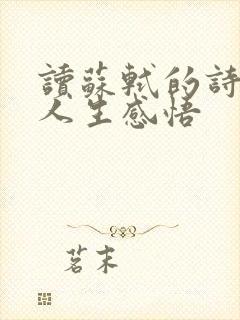 讀蘇軾的詩
人生感悟
茗末